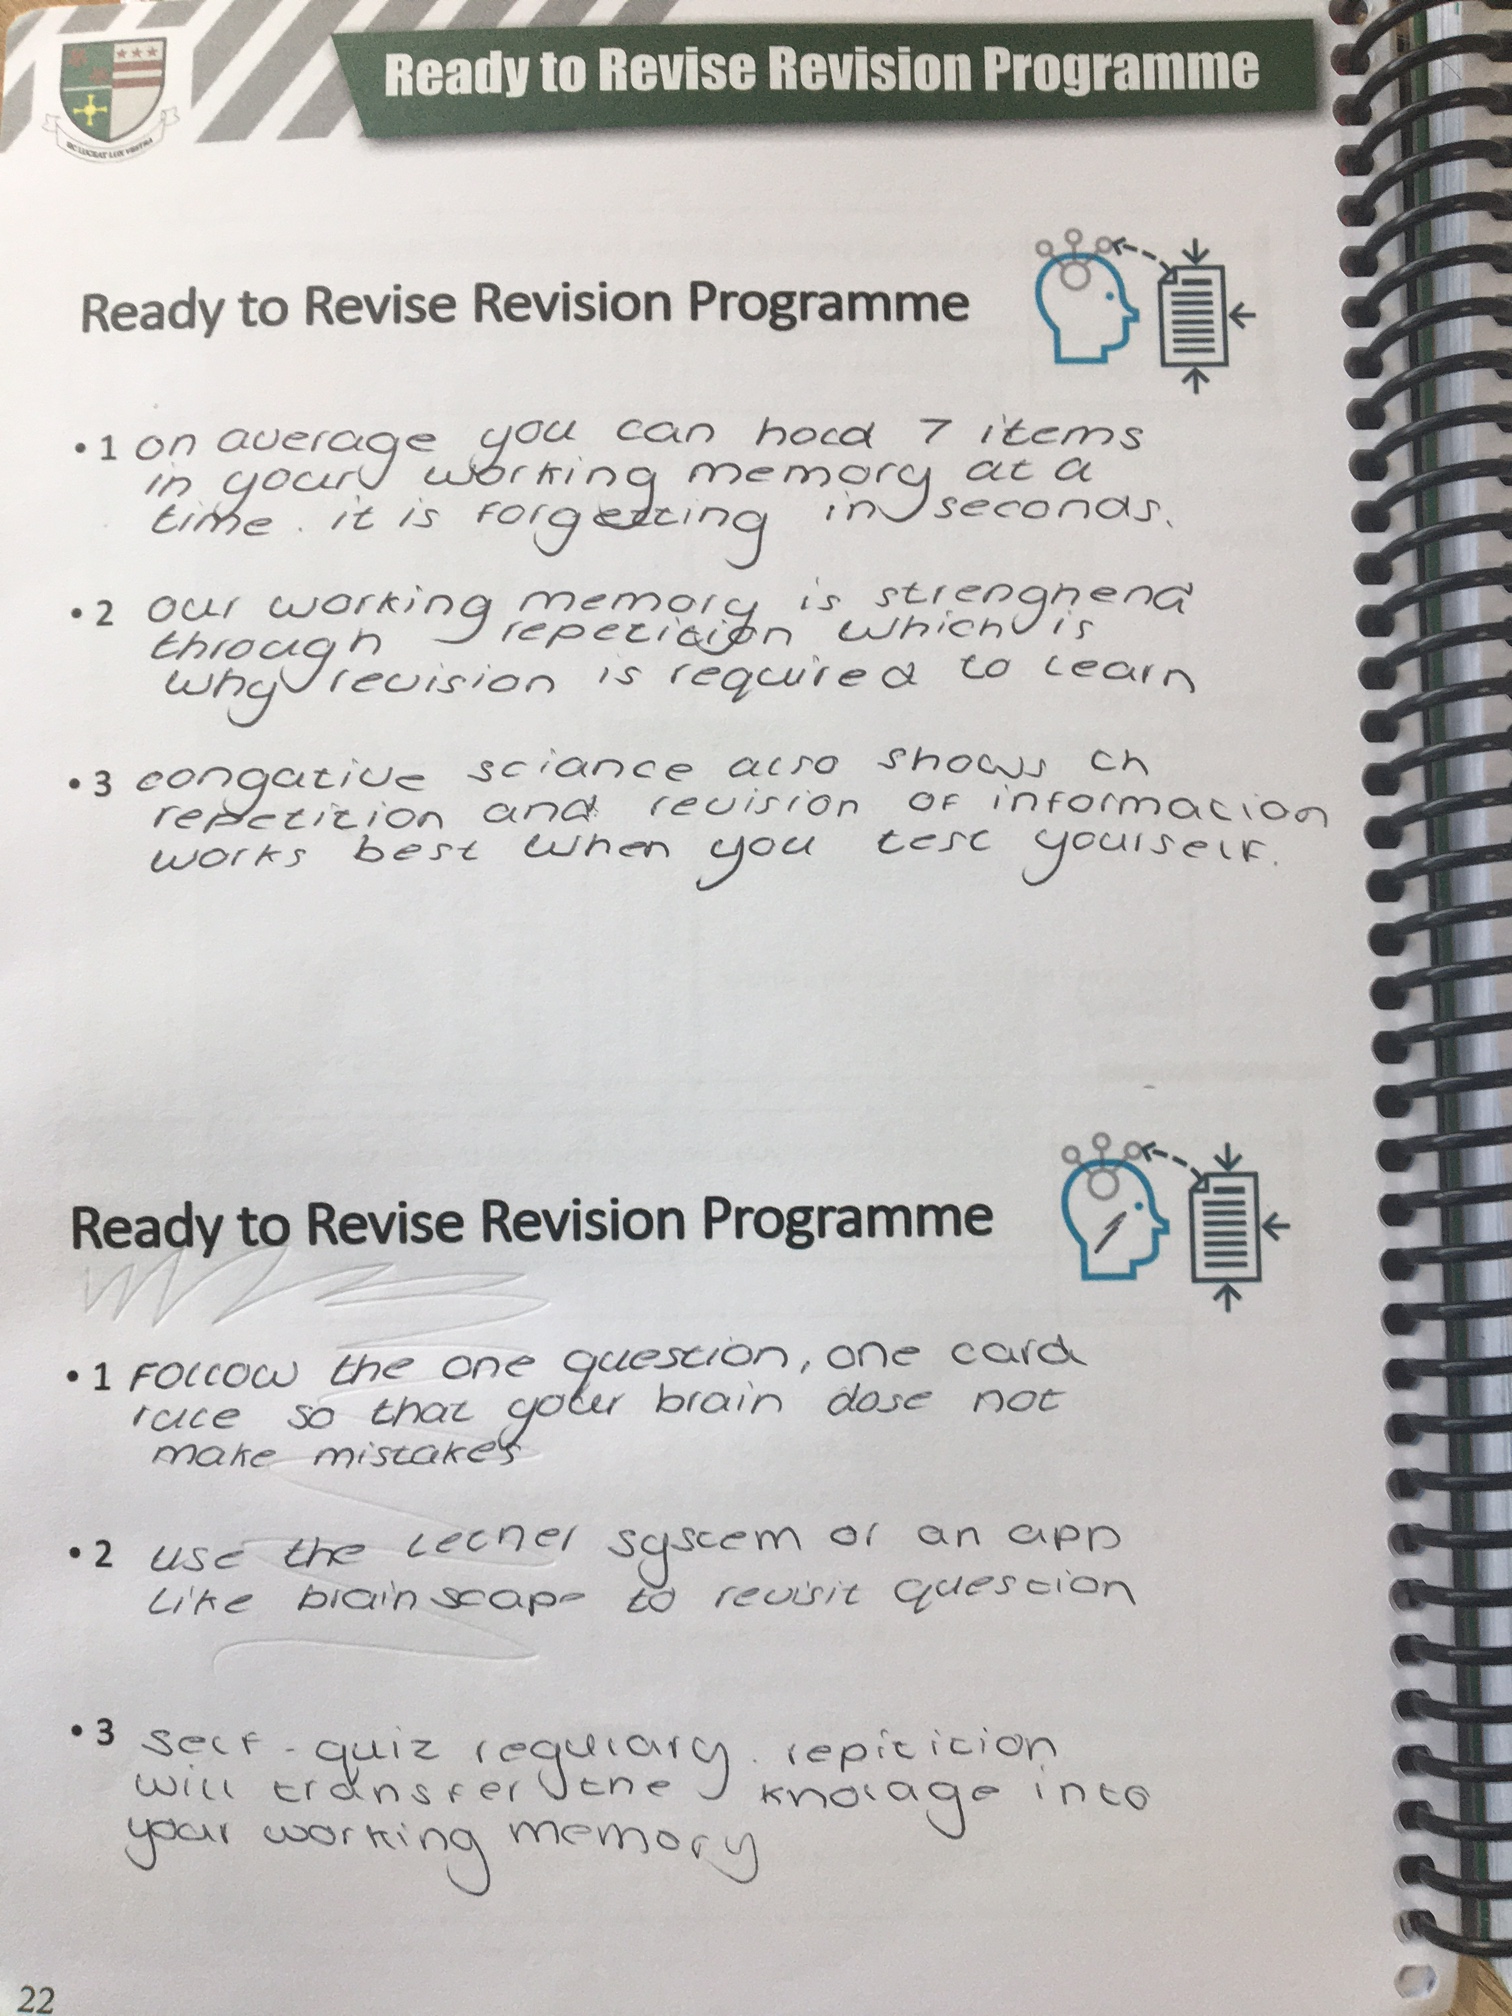 Ready to Revise Revision Programme
SIC LUCEAT LUX VESTRA
Ready to Revise Revision Programme
• 1 on average you can hold 7 items
in your working memory at a
time. it is forgetting in seconds.
• 2 our working memory is strenghend
through repetition which is
why revision is required to learn
• 3 congative sciance also shows th
repetition and revision of information
works best when you test yourself.
Ready to Revise Revision Programme
• 1 Follow the one question, one card
rule so that your brain dose not
make mistakes
• 2 use the lecner system or an app
like brainscape to revisit question
• 3 self-quiz regulary. repitition
will transfer the knolage into
your working memory
22